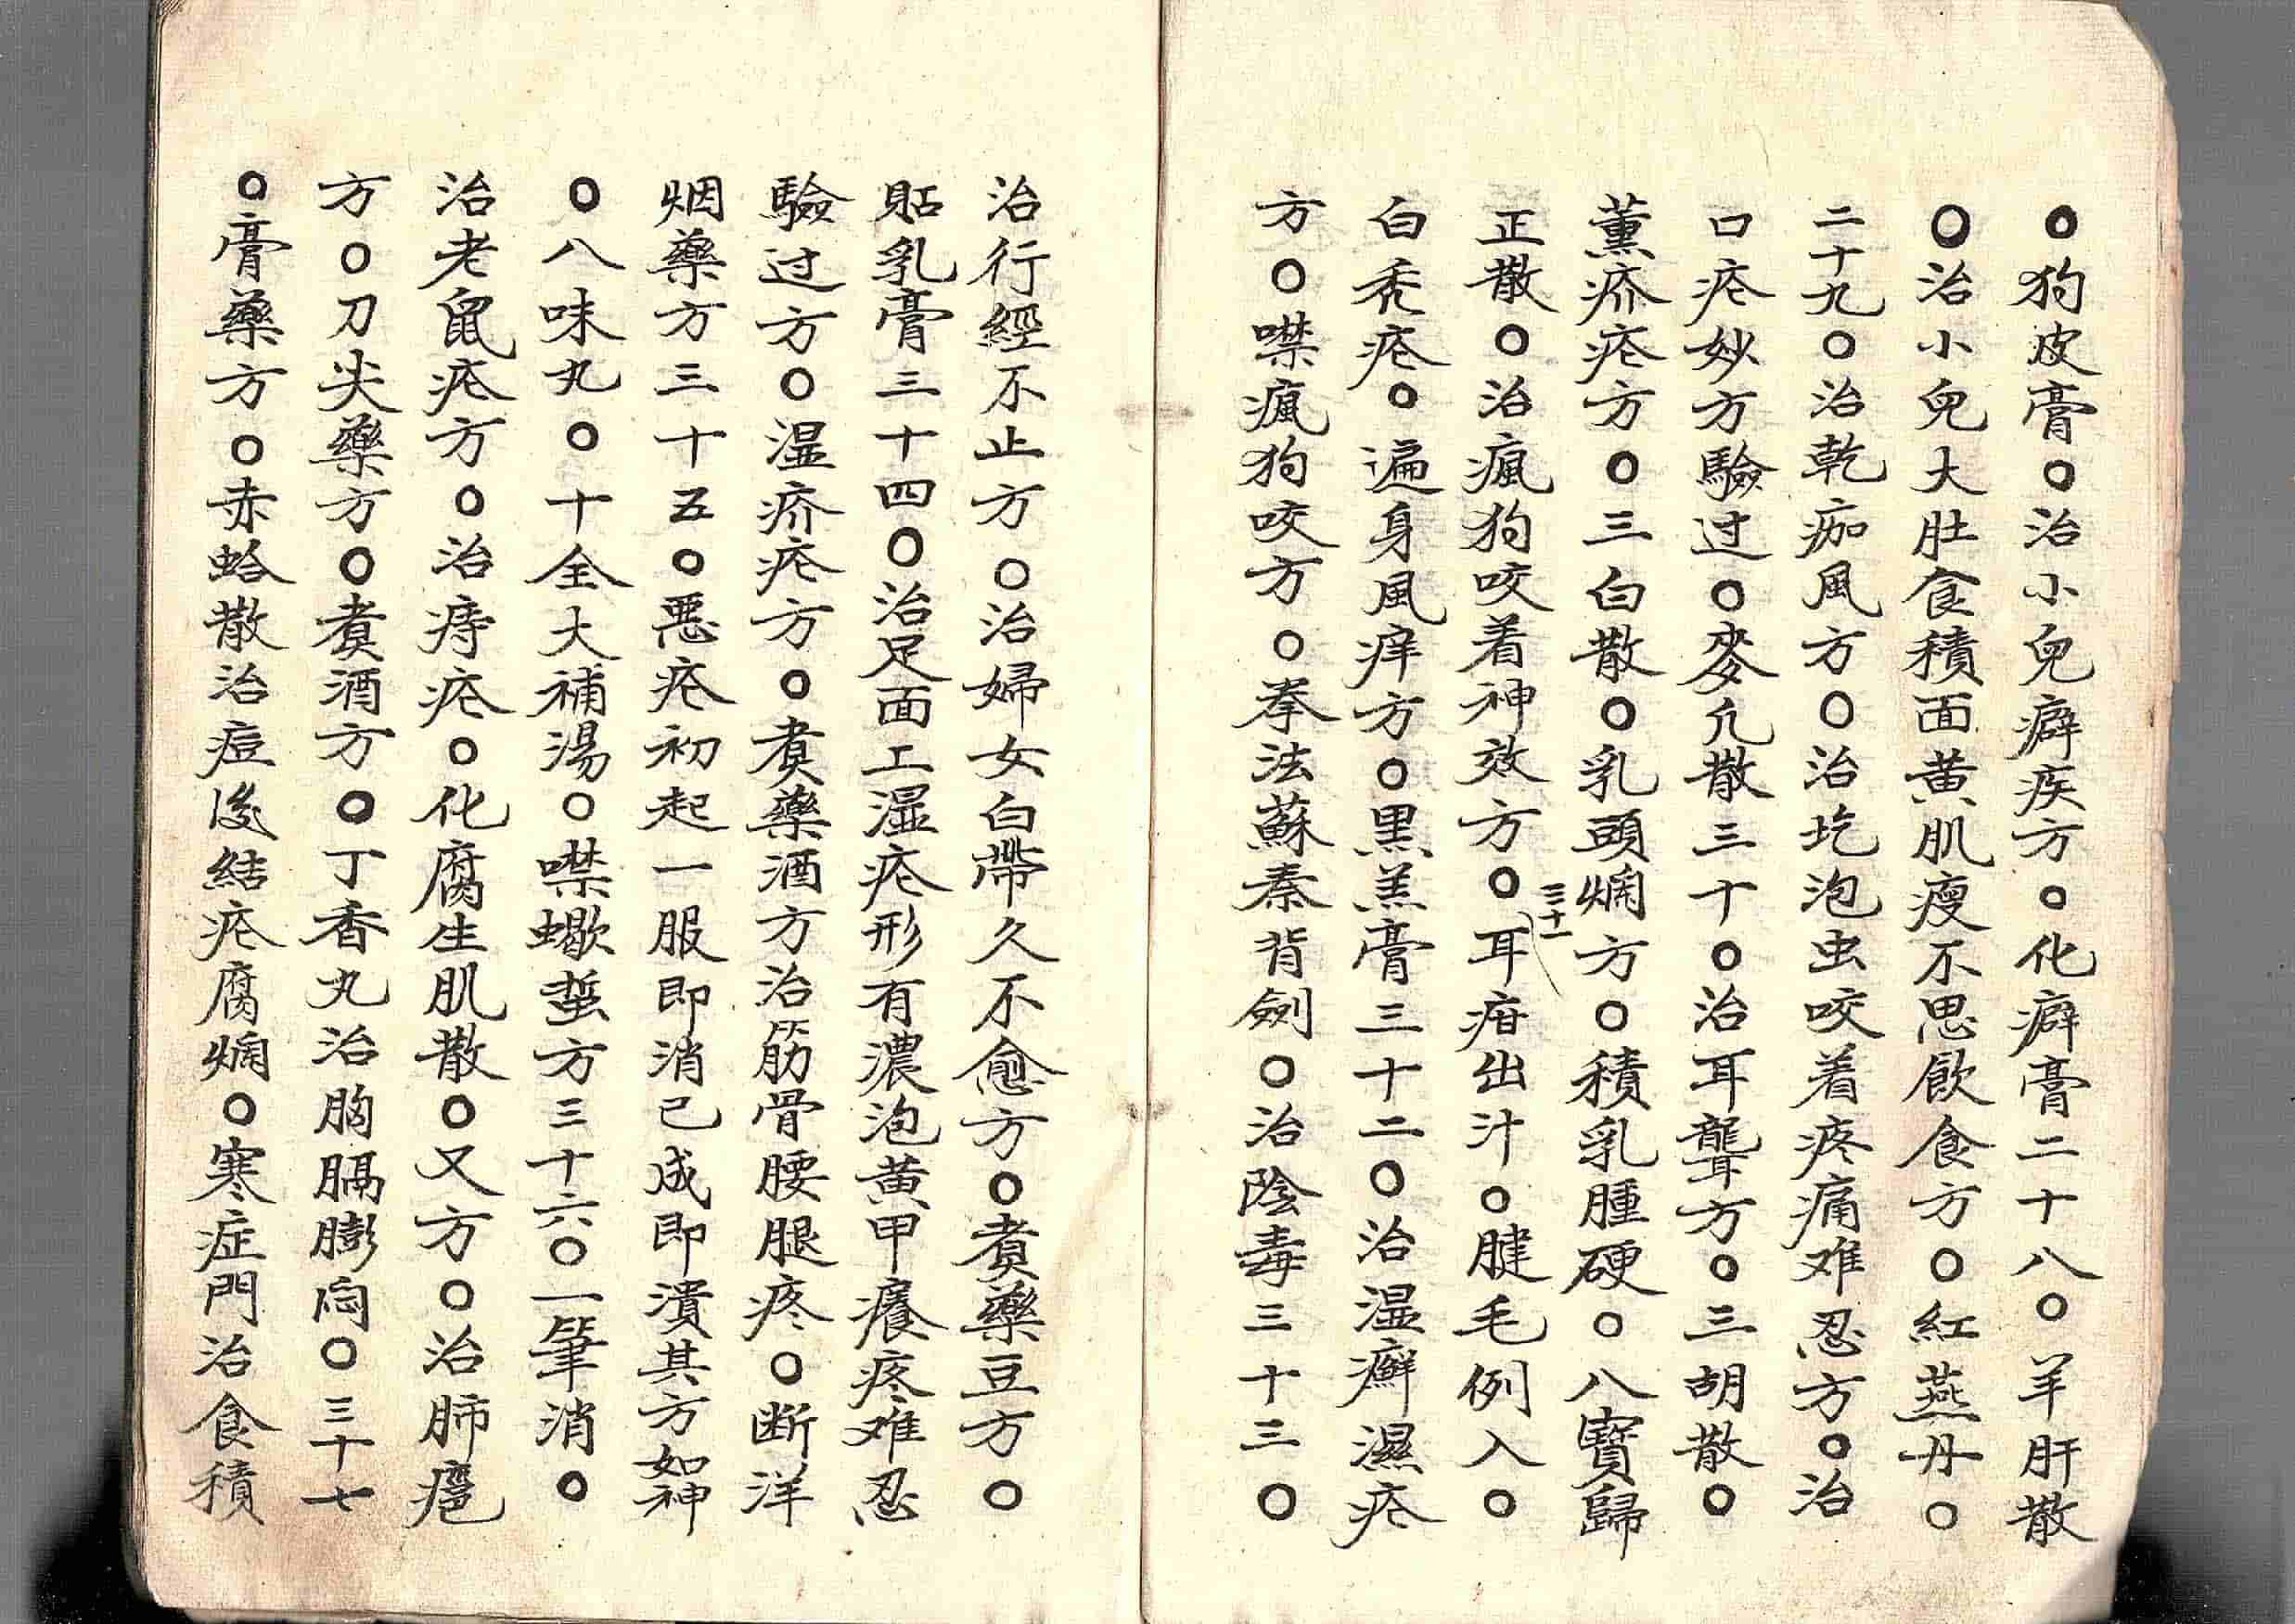 ○狗皮膏○治小兒癖疾方○化癖膏二十八○羊肝散
○治小兒大肚食積面黃肌瘦不思飲食方○紅燕丹○
二十九○治乾痂風方○治圪泡虫咬着疼痛难忍方○治
口疮妙方驗过○麥几散三十○治耳聾方○三胡散○
薰疥疮方○三白散○乳頭爛方○積乳腫硬○八寳歸
三十一
正散○治瘋狗咬着神效方○耳疳出汁○睫毛例入○
白秃疮○遍身風痒方○黑羔膏三十二○治湿癬濕疮
方○噤瘋狗咬方○拳法蘇秦背劍○治陰毒三十三○
治行經不止方○治婦女白帶久不愈方○煑藥豆方○
貼乳膏三十四○治足面上湿疮形有濃泡黃甲癢疼难忍
驗过方○湿疥疮方○煑藥酒方治筋骨腰腿疼○断洋
烟藥方三十五○惡疮初起一服即消已成即潰其方如神
○八味丸○十全大補湯○噤蠍蜇方三十六○一筆消○
治老鼠疮方○治痔疮○化腐生肌散○又方○治肺癰
方○刀尖藥方○煑酒方○丁香丸治胸膈膨悶○三十七
○膏藥方○赤蛤散治痘後結疮腐爛○寒症門治食積